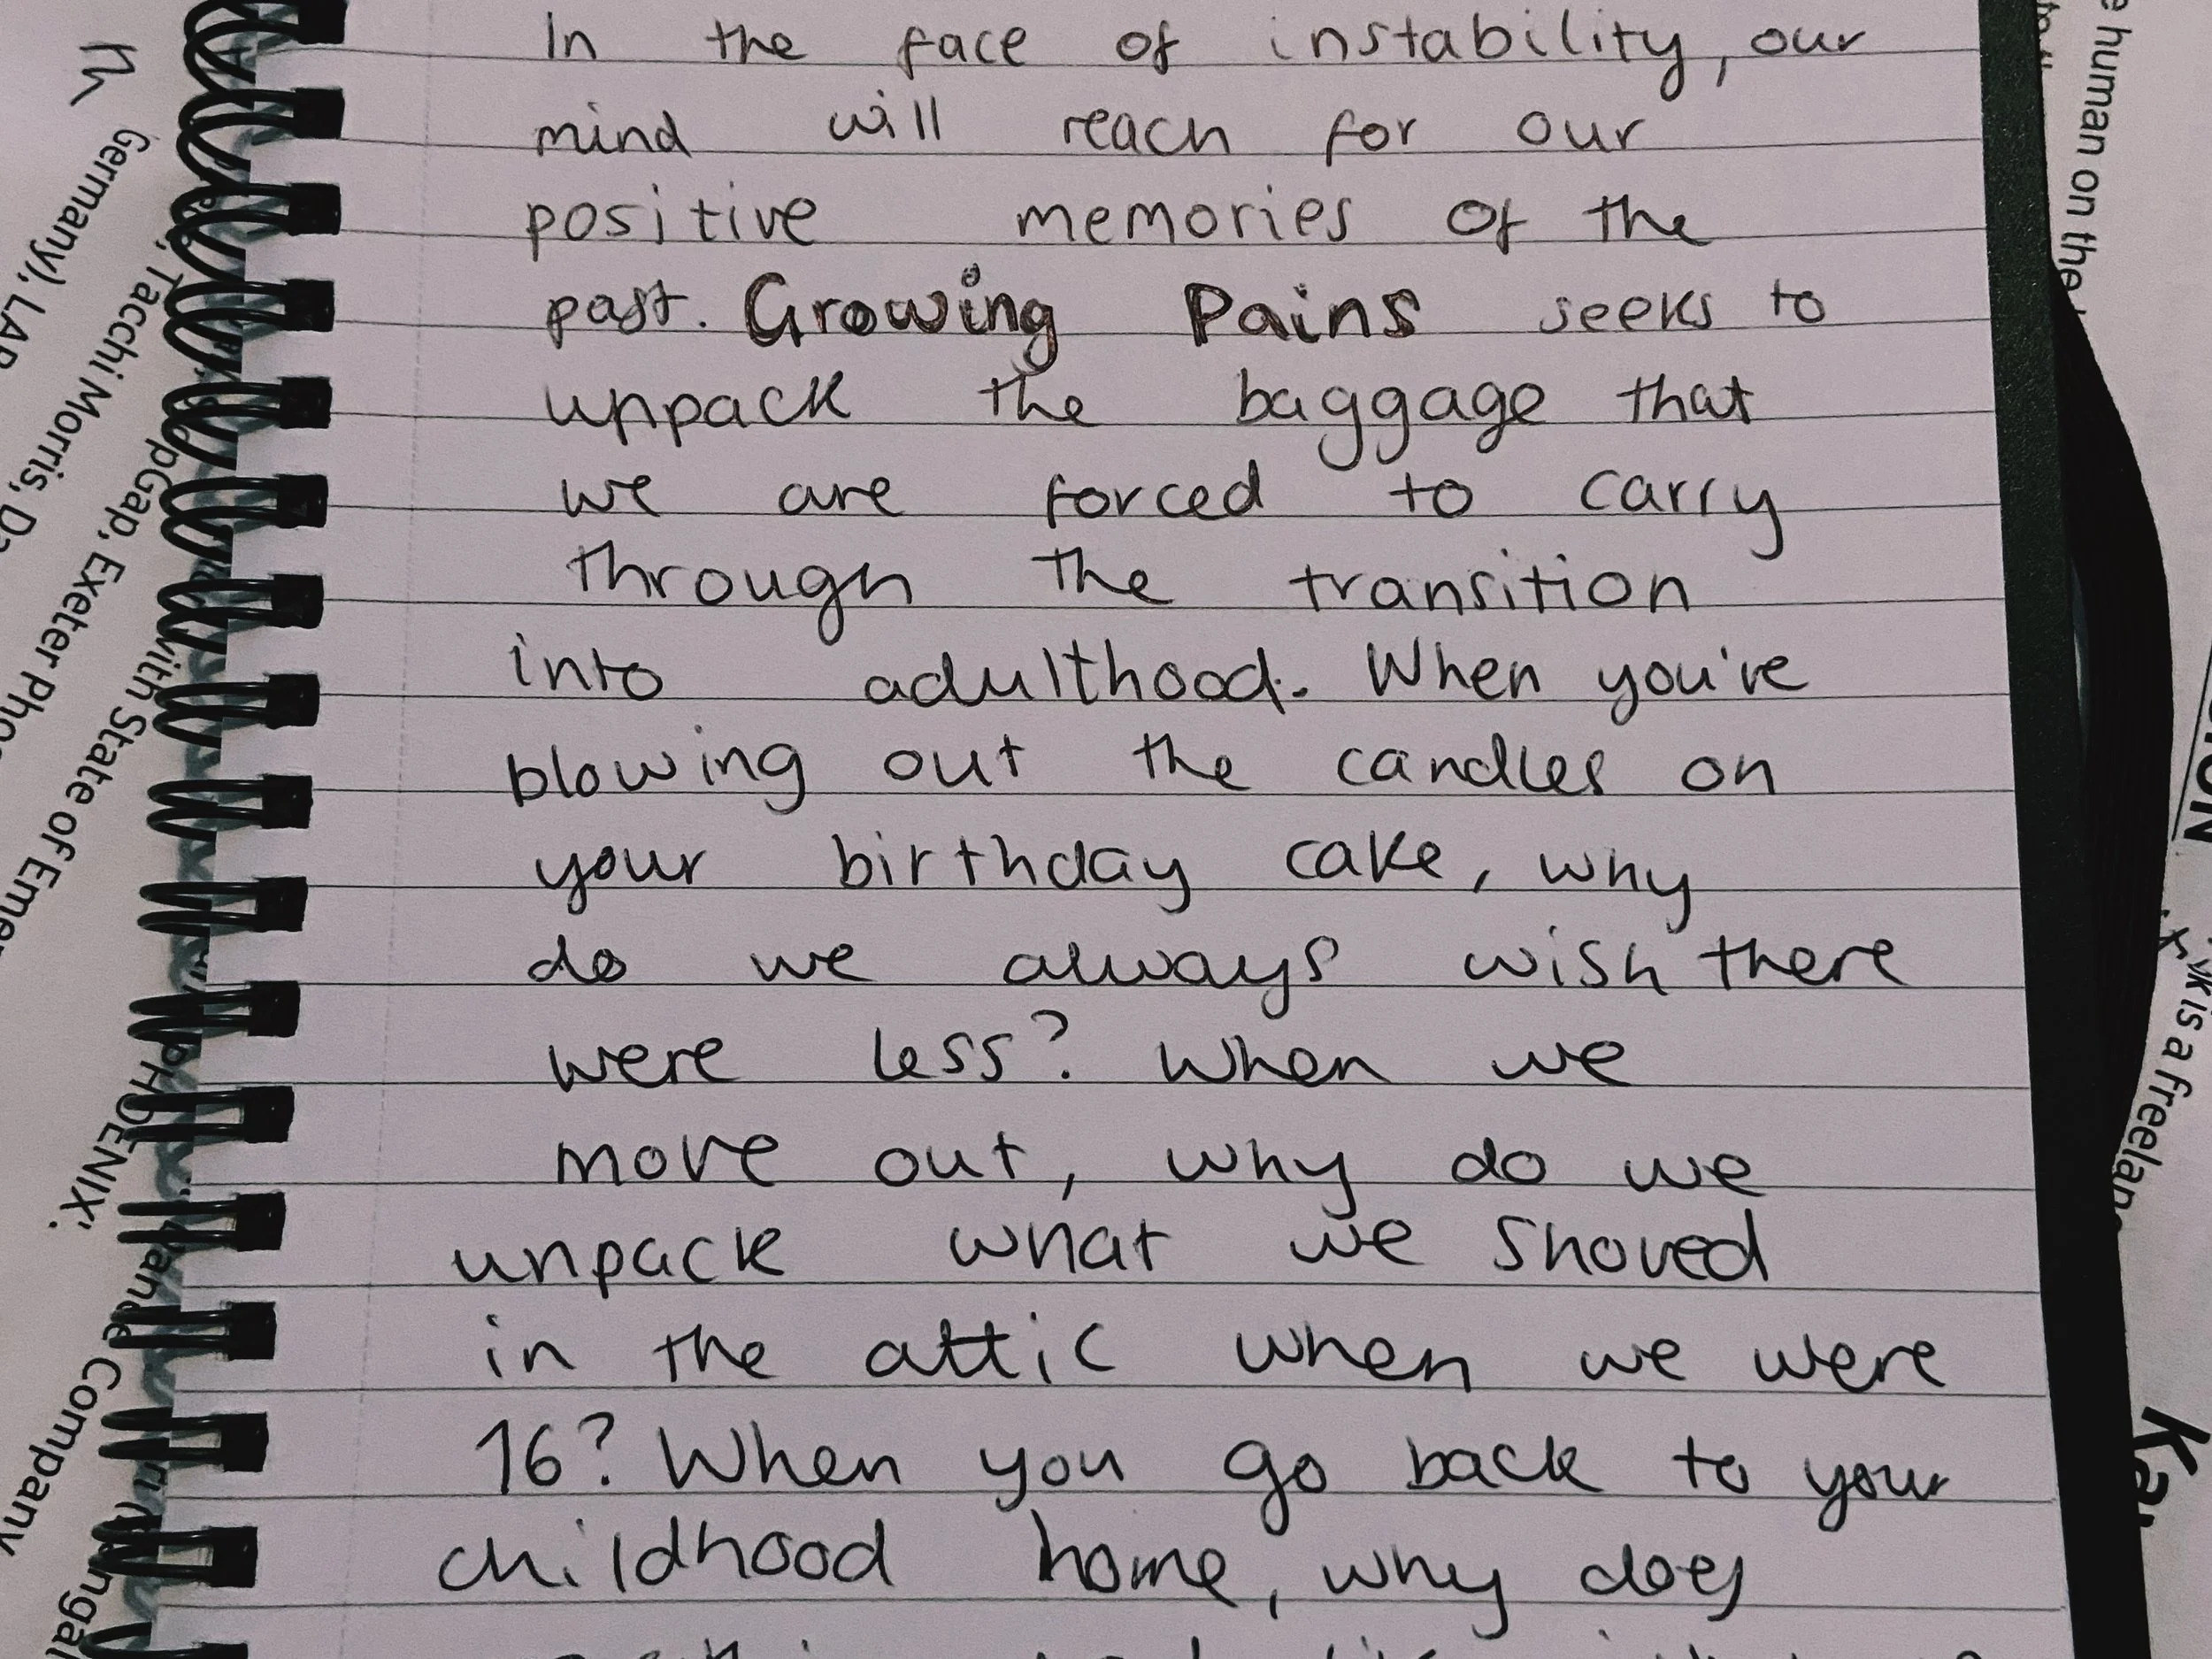 In the face of instability, our
mind will reach for our
positive memories of the
past. Growing Pains seeks to
unpack the baggage that
we are forced to carry
through the transition
into adulthood. When you've
blowing out the candles on
your birthday cake, why
do we always wish there
were less? When we
move out, why do we
unpack what we shoved
in the attic when we were
16? When you go back to your
childhood home, why does
Germany), LAP
Tacchi Morris, Da
pGap, Exeter Pho
with State of Emer
PHOENIX'.
Dance Company
human on the
is a freelan